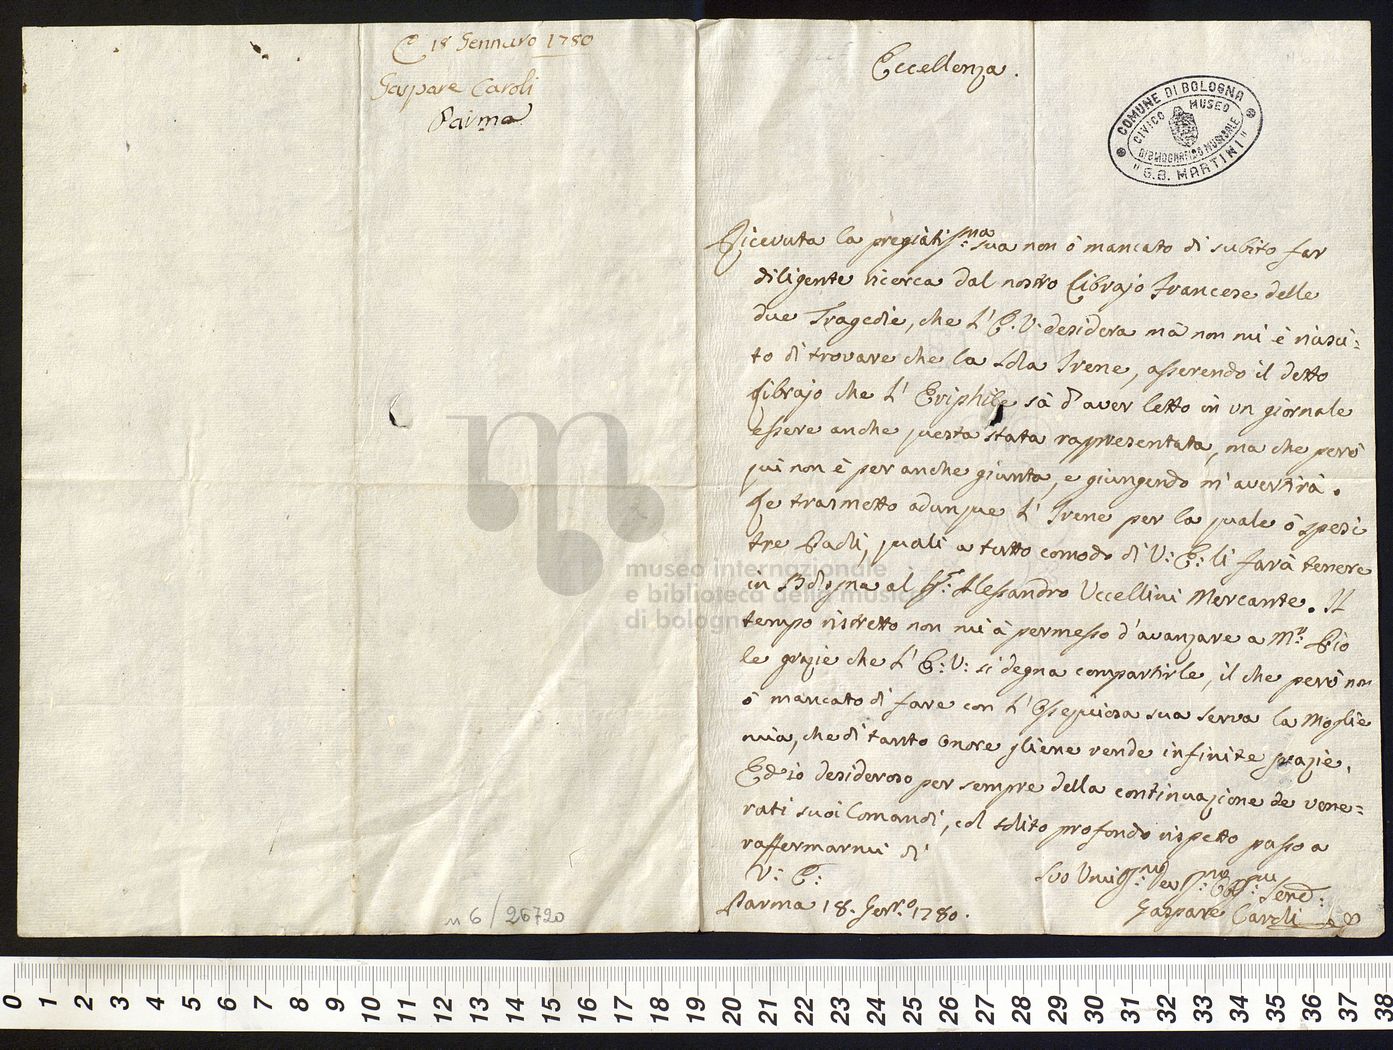 C 18 Gennaro 1780
Gaspare Caroli
Parma
Eccellenza.
COMUNE DI BOLOGNA
CIVICO MUSEO
BIBLIOGRAFICO MUSICALE
"G.B. MARTINI"
Ricevuta la pregiatiss:ma sua non ò mancato di subito far
diligente ricerca dal nostro Librajo francese delle
due Tragedie, che l'E.V. desidera mà non mi è riusci:
to di trovare che la sola Irene, asserendo il detto
Librajo che l'Eriphile sà d'aver letto in un giornale
essere anche questa stata rappresentata, ma che però
qui non è per anche giunta, e giungendo m'avertirà.
Le trasmetto adunque l'Irene per la quale ò spesi
tre Paoli, quali a tutto comodo di V: E: li farà tenere
in Bologna al Sig: Alessandro Uccellini Mercante. Il
tempo ristretto non mi à permesso d'avanzare a Mr: Pio
le grazie che l'E: V: si degna compartirle, il che però non
ò mancato di fare con l'Ossequiosa sua serva la Moglie
mia, che di tanto Onore gliene rende infinite grazie.
Ed io desideroso per sempre della continuazione de vene=
rati suoi Comandi, col solito profondo rispetto passo a
raffermarmi di
V: E:
Suo Umiss:mo Dev:mo Obb:mo Serd:
Parma 18. Gen:o 1780.
Gaspare Caroli
n 6 / 26720
museo internazionale
e biblioteca della musica
di bologna
0 1 2 3 4 5 6 7 8 9 10 11 12 13 14 15 16 17 18 19 20 21 22 23 24 25 26 27 28 29 30 31 32 33 34 35 36 37 38